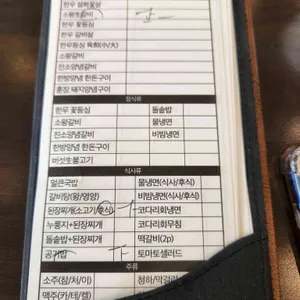 한우 꽃등심
한우 갈비살
한우등심 육회(小/大)
소왕갈비
진소양념갈비
한방양념 한돈구이
훈장 돼지양념구이
정식류
한우 꽃등심 돌솥밥
소왕갈비 물냉면
진소양념갈비 비빔냉면
한방양념 한돈구이
버섯생불고기
식사류
얼큰국밥 물냉면(식사/후식)
갈비탕(왕/영양) 비빔냉면(식사/후식)
된장찌개(소고기/후식) 코다리회냉면
누룽지+된장찌개 코다리회무침
돌솥밥+된장찌개 떡갈비(2p)
공기밥 토마토샐러드
주류
소주(참/처/이) 청하/막걸리
맥주(카/테/켈)